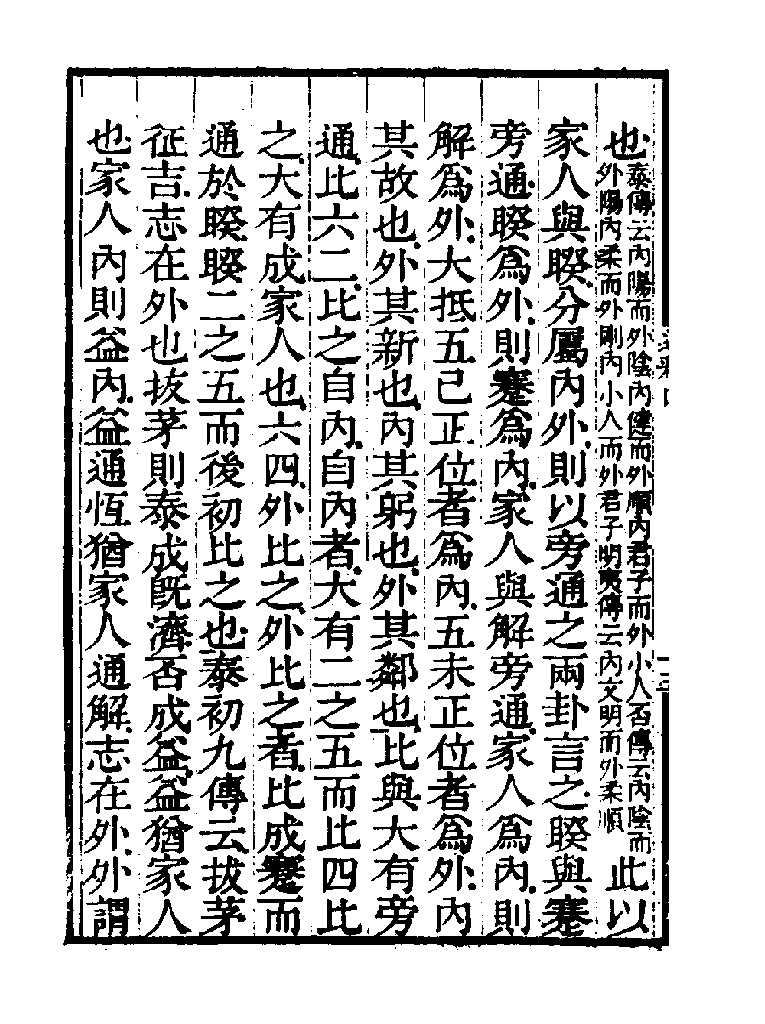 也泰傳云內陽而外陰內健而外順內君子而外小人否傳云內陰而
外陽內柔而外剛內小人而外君子明夷傳云內文明而外柔順此以
家人與睽分屬內外則以旁通之兩卦言之睽與蹇
旁通睽爲外則蹇爲內家人與解旁通家人爲內則
解爲外大抵五已正位者爲內五未正位者爲外內
其故也外其新也內其躬也外其鄰也比與大有旁
通比六二比之自內自內者大有二之五而比四比
之大有成家人也六四外比之外比之者比成蹇而
通於睽睽二之五而後初比之也泰初九傳云拔茅
征吉志在外也拔茅則泰成旣濟否成益益猶家人
也家人內則益內益通恆猶家人通解志在外外謂